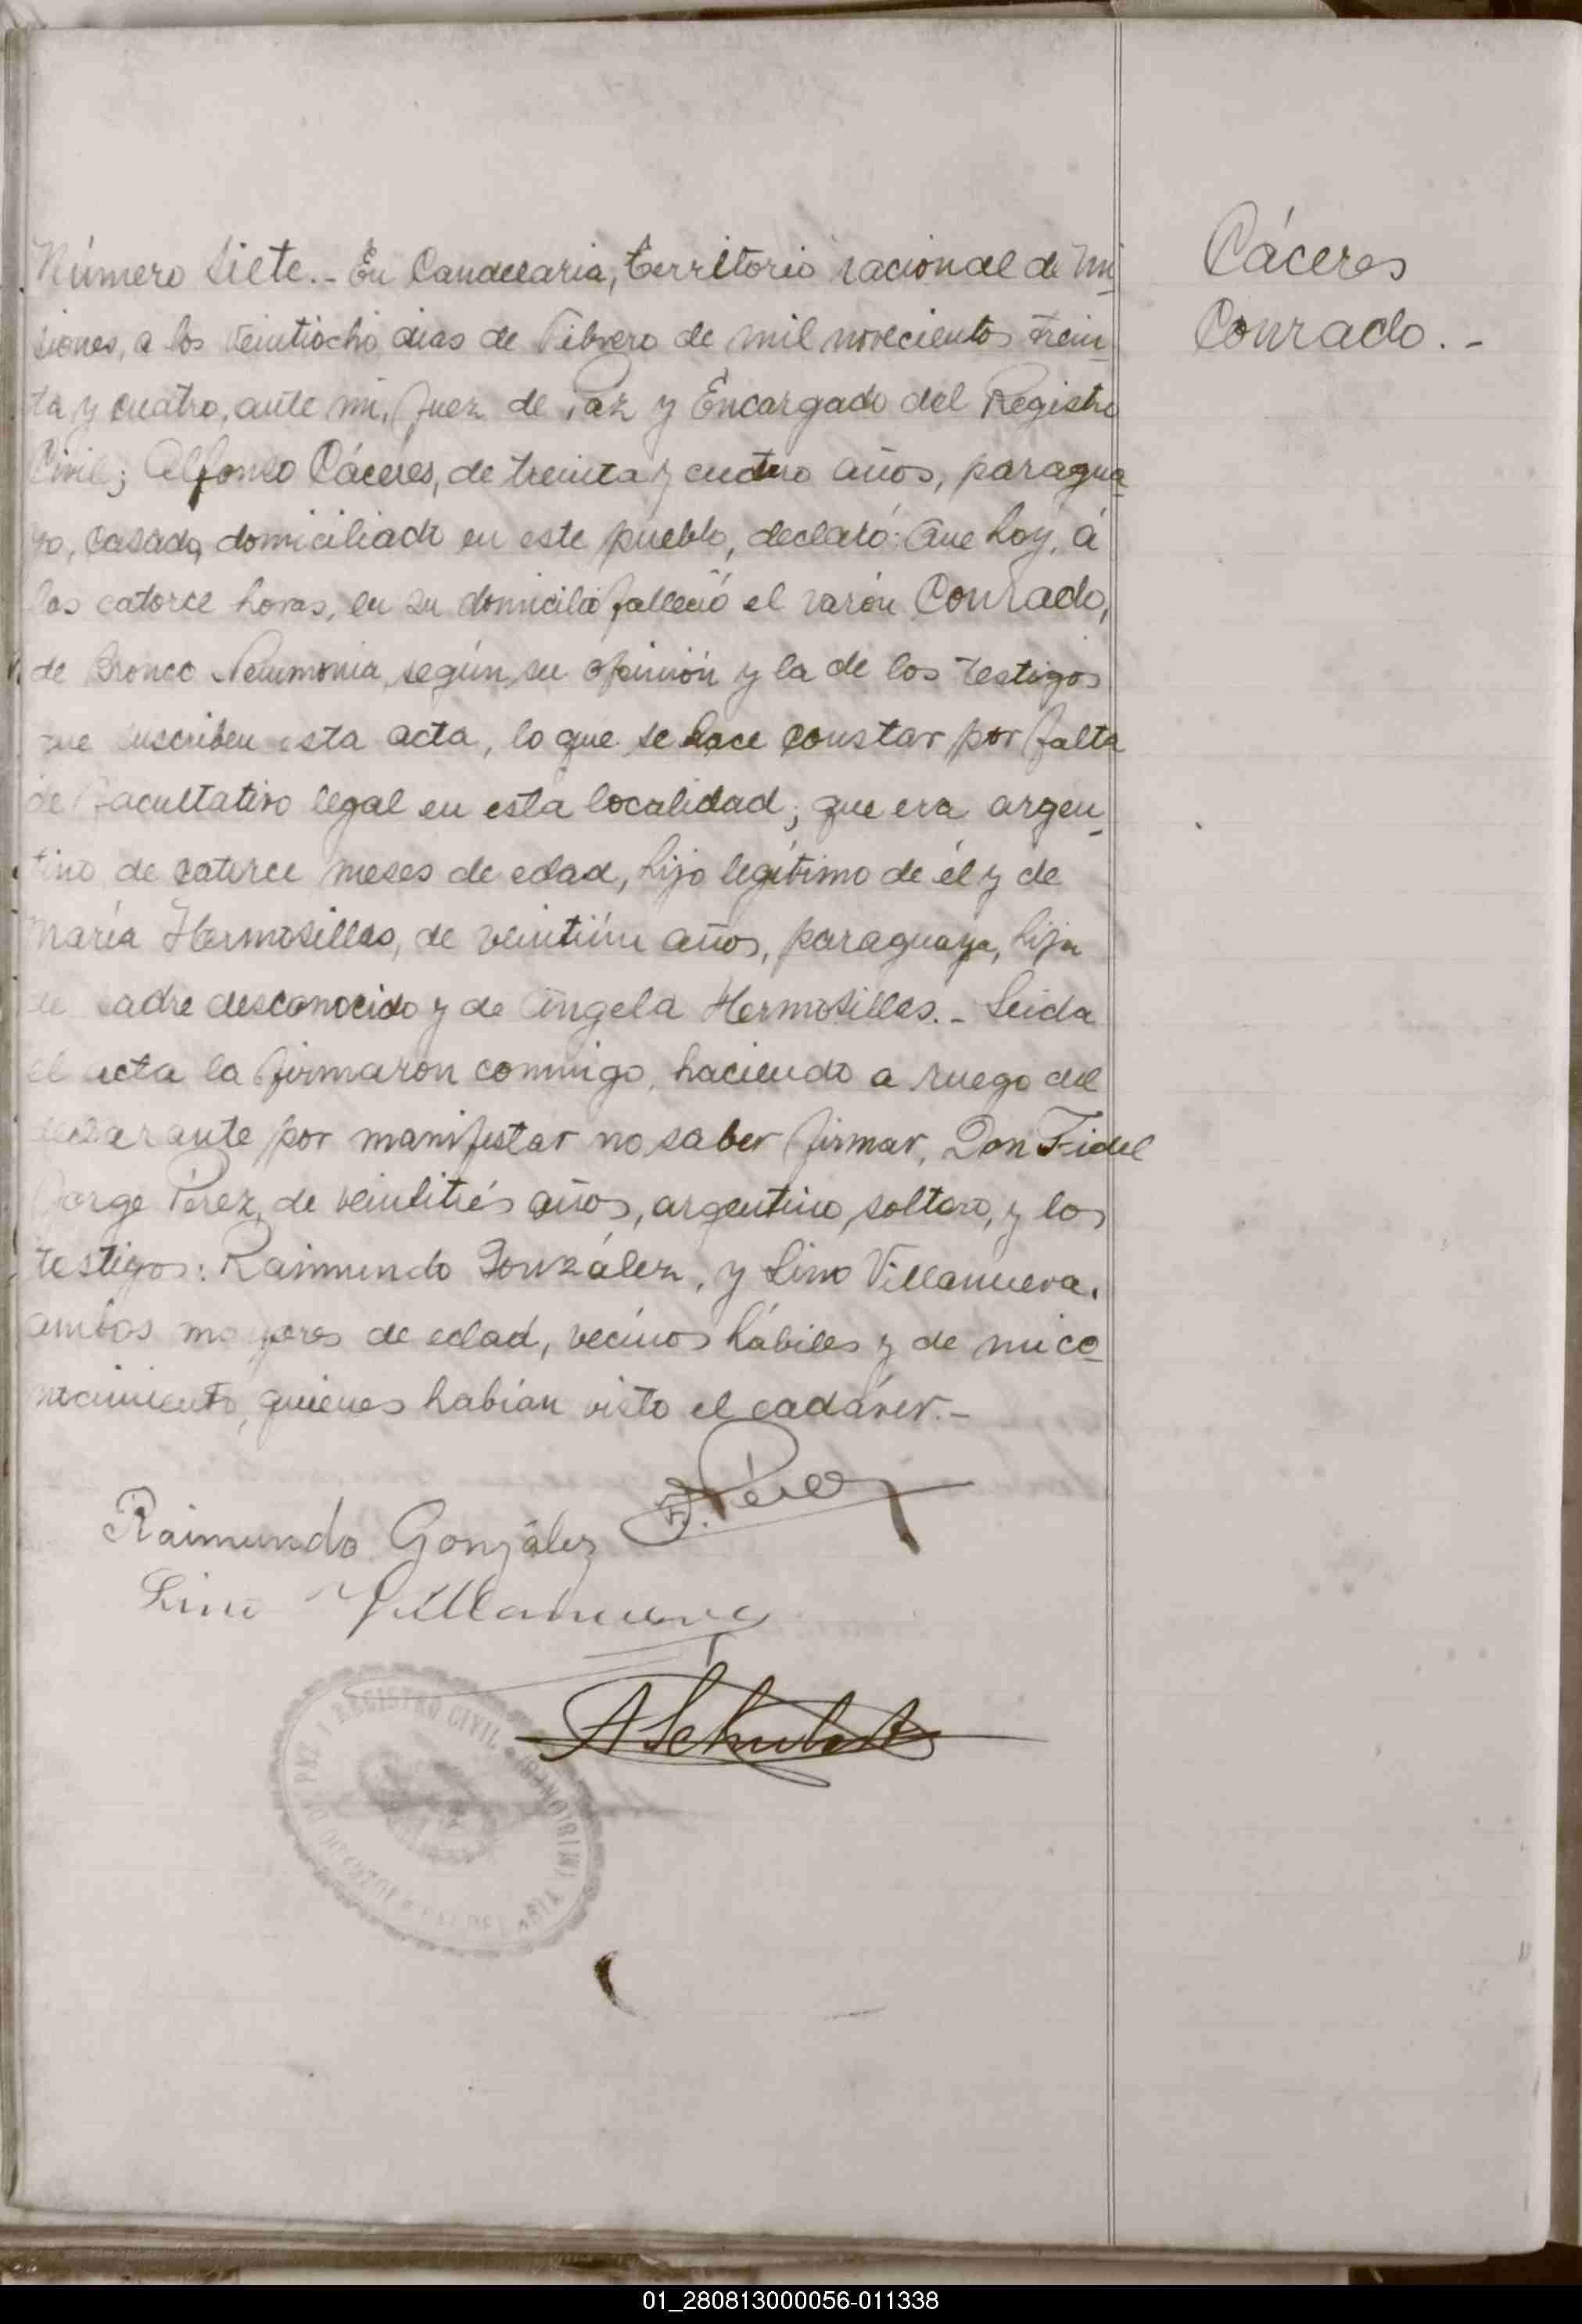 Número Siete.- En Candelaria, territorio nacional de Mi-
siones, a los veintiocho dias de Febrero de mil novecientos trein-
ta y cuatro, ante mi, Juez de Paz y Encargado del Registro
Civil; Alfonso Cáceres, de treinta y cuatro años, paragua-
yo, casado, domiciliado en este pueblo, declaró: Que hoy, á
las catorce horas, en su domicilio falleció el varón Conrado,
de Bronco Neumonia, según su opinión y la de los testigos
que suscriben esta acta, lo que se hace constar por falta
de facultativo legal en esta localidad; que era argen-
tino, de catorce meses de edad, hijo legítimo de él y de
María Hermosillas, de veintiún años, paraguaya, hija
de padre desconocido y de Angela Hermosillas.- Leida
el acta la firmaron conmigo, haciendo a ruego del
declarante por manifestar no saber firmar, Don Fidel
Jorge Pérez, de veintitrés años, argentino, soltero, y los
testigos: Raimundo González, y Lino Villanueva.
ambos mayores de edad, vecinos hábiles y de mi co-
nocimiento, quienes habían visto el cadáver.-
Cáceres
Conrado.-
F. J. Pérez
Raimundo González
Lino Villanueva
A Schubert
PAZ Y REGISTRO CIVIL
01_280813000056-011338